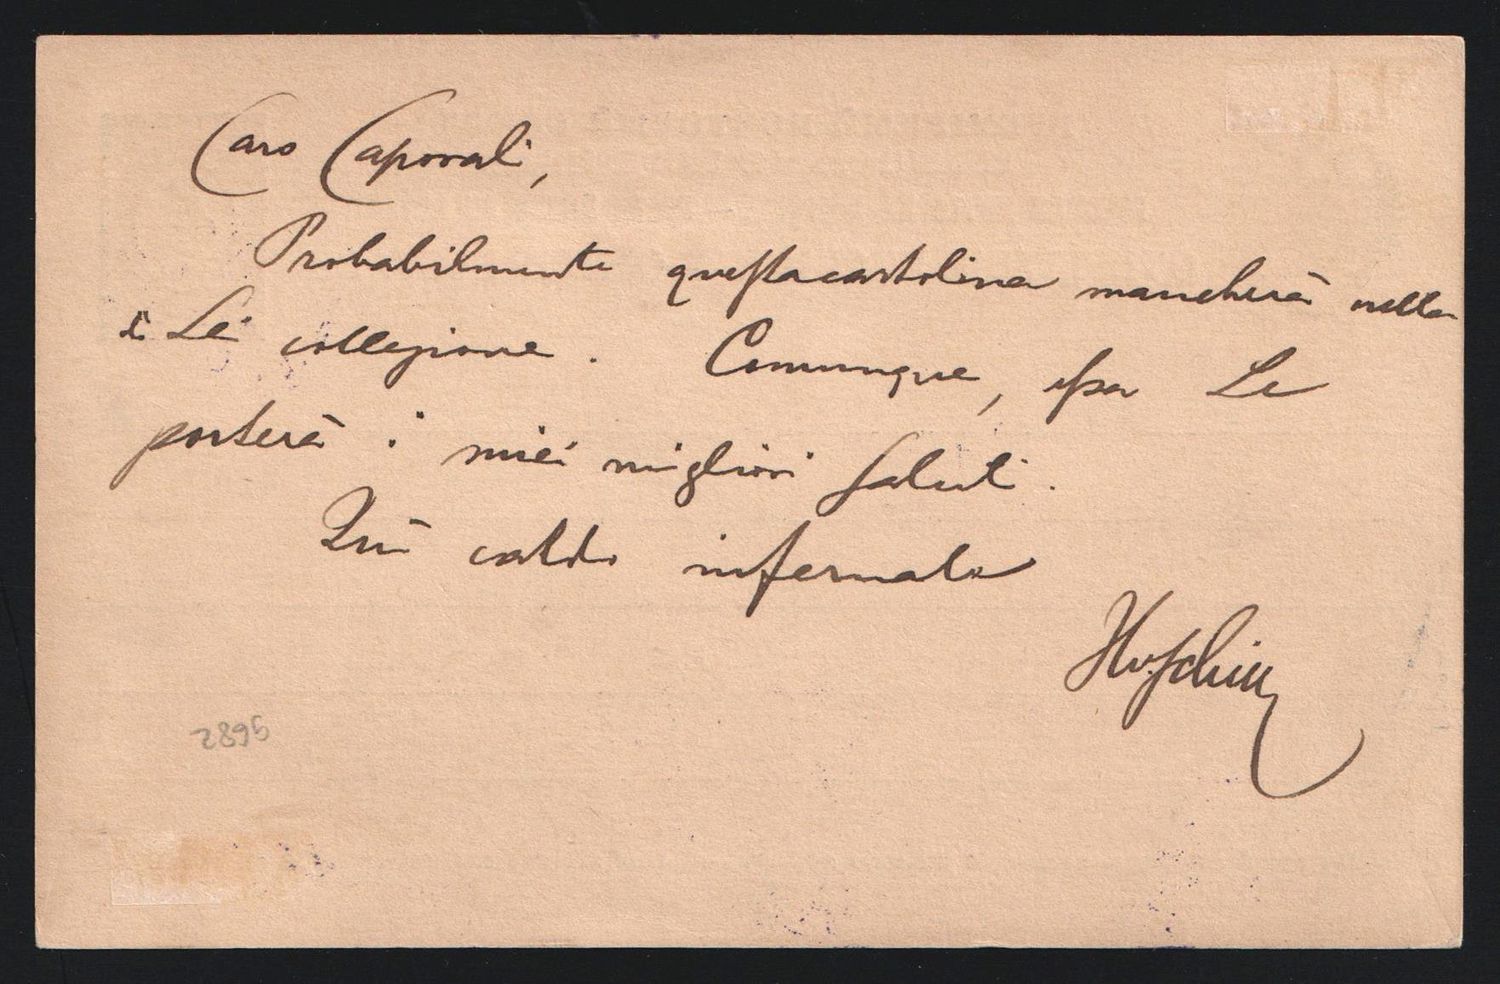 Caro Caporali,
Probabilmente questa cartolina mancherà nella
di Lei collezione. Comunque, essa Le
porterà i miei migliori saluti.
Quì caldo infernale
2895